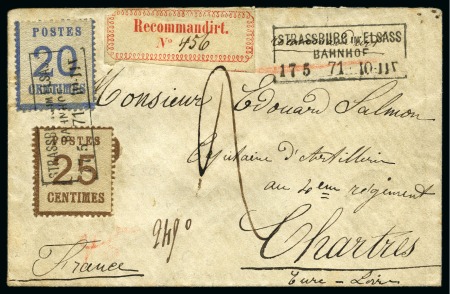 POSTES
20
CENTIMES
Recommandirt.
No 456
STRASSBURG IN ELSASS
BAHNHOF
17 5 71 10-11
STRASSB
71
Monsieur Edouard Salmon
Capitaine d'Artillerie
au 4eme régiment
POSTES
25
CENTIMES
249
Chartres
France
Eure-Loir